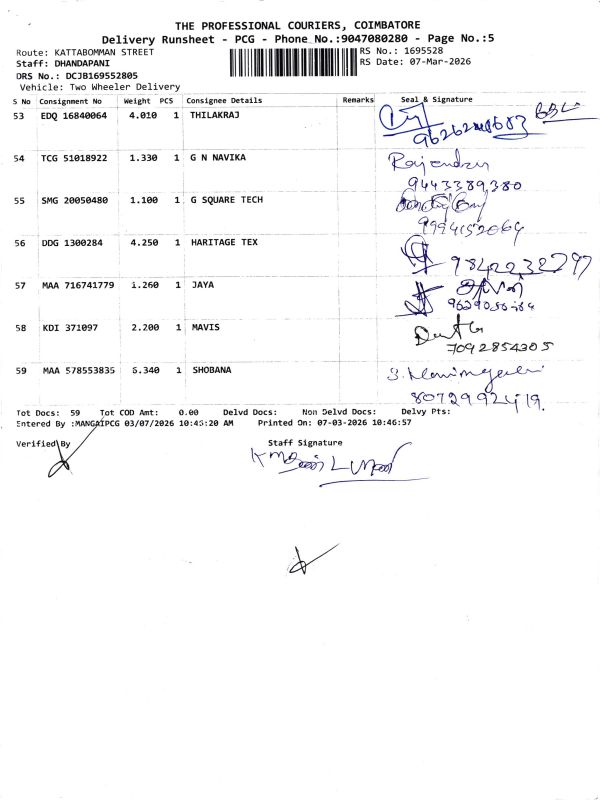 THE PROFESSIONAL COURIERS, COIMBATORE
Delivery Runsheet - PCG - Phone No.:9047080280 - Page No.:5
Route: KATTABOMMAN STREET
RS No.: 1695528
Staff: DHANDAPANI
RS Date: 07-Mar-2026
DRS No.: DCJB169552805
Vehicle: Two Wheeler Delivery
S No Consignment No Weight PCS Consignee Details Remarks Seal & Signature
53 EDQ 16840064 4.010 1 THILAKRAJ
54 TCG 51018922 1.330 1 G N NAVIKA Rajendran
9443389380
55 SMG 20050480 1.100 1 G SQUARE TECH
9994152064
56 DDG 1300284 4.250 1 HARITAGE TEX
9842232797
57 MAA 716741779 1.260 1 JAYA
58 KDI 371097 2.200 1 MAVIS
7092854305
59 MAA 578553835 6.340 1 SHOBANA
8072992419.
Tot Docs: 59 Tot COD Amt: 0.00 Delvd Docs: Non Delvd Docs: Delvy Pts:
Entered By :MANGAIPCG 03/07/2026 10:45:20 AM Printed On: 07-03-2026 10:46:57
Verified By Staff Signature